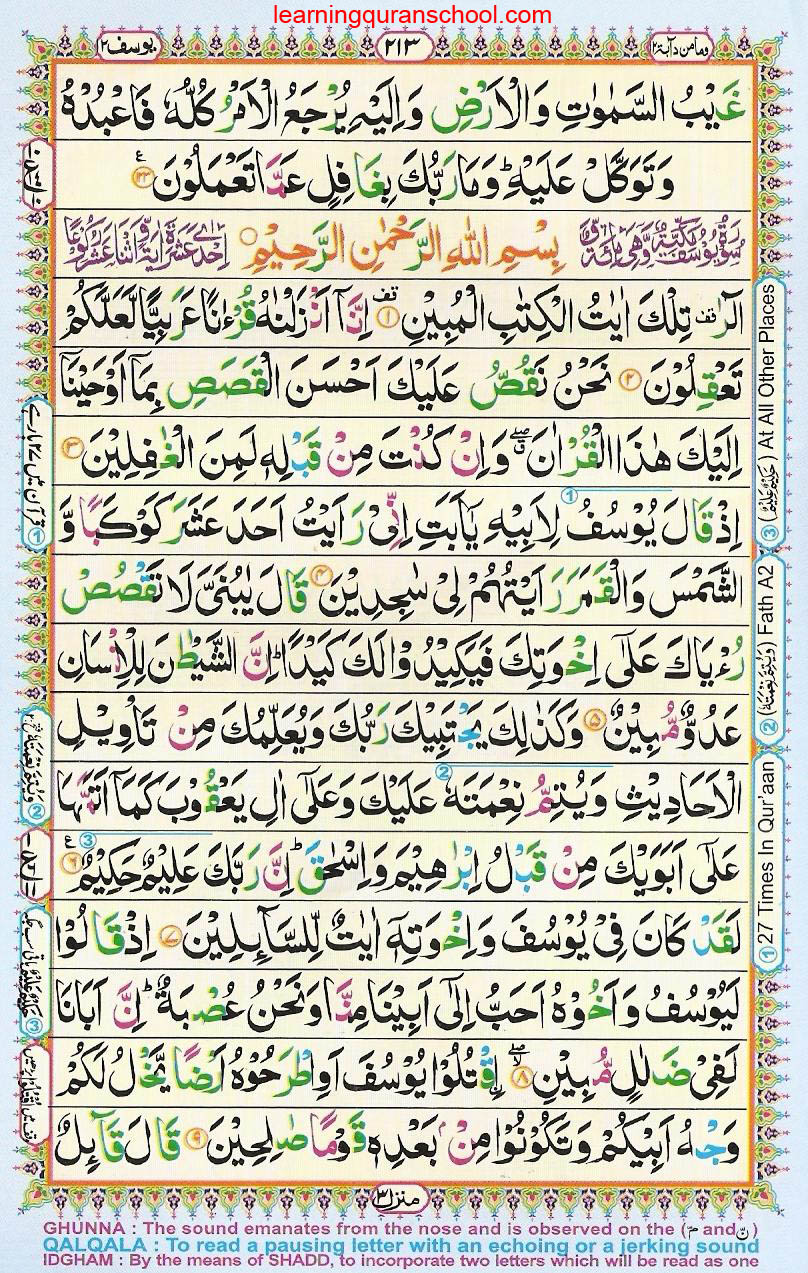 learningquranschool.com
یوسف ۱۲
۲۱۳
ومامن دآبۃ ۱۲
غَيْبُ السَّمٰوٰتِ وَالْاَرْضِ وَاِلَيْهِ يُرْجَعُ الْاَمْرُ كُلُّهٗ فَاعْبُدْهُ
وَتَوَكَّلْ عَلَيْهِ ؕ وَمَا رَبُّكَ بِغَافِلٍ عَمَّا تَعْمَلُوْنَ ۱۲۳
سُوْرَةُ يُوْسُفَ مَكِّيَّةٌ وَّهِيَ مِائَةٌ وَّ بِسْمِ اللّٰهِ الرَّحْمٰنِ الرَّحِيْمِ اِحْدٰى عَشَرَةَ اٰيَةً وَّاثْنَا عَشَرَ رُكُوْعًا
الٓرٰ قف تِلْكَ اٰيٰتُ الْكِتٰبِ الْمُبِيْنِ ۱ قف اِنَّاۤ اَنْزَلْنٰهُ قُرْءٰنًا عَرَبِيًّا لَّعَلَّكُمْ
تَعْقِلُوْنَ ۲ نَحْنُ نَقُصُّ عَلَيْكَ اَحْسَنَ الْقَصَصِ بِمَاۤ اَوْحَيْنَاۤ
اِلَيْكَ هٰذَا الْقُرْاٰنَ وَاِنْ كُنْتَ مِنْ قَبْلِهٖ لَمِنَ الْغٰفِلِيْنَ ۳
اِذْ قَالَ يُوْسُفُ لِاَبِيْهِ يٰۤاَبَتِ اِنِّىْ رَاَيْتُ اَحَدَ عَشَرَ كَوْكَبًا وَّ
الشَّمْسَ وَالْقَمَرَ رَاَيْتُهُمْ لِىْ سٰجِدِيْنَ ۴ قَالَ يٰبُنَىَّ لَا تَقْصُصْ
رُءْيَاكَ عَلٰٓى اِخْوَتِكَ فَيَكِيْدُوْا لَكَ كَيْدًا ؕ اِنَّ الشَّيْطٰنَ لِلْاِنْسَانِ
عَدُوٌّ مُّبِيْنٌ ۵ وَكَذٰلِكَ يَجْتَبِيْكَ رَبُّكَ وَيُعَلِّمُكَ مِنْ تَاْوِيْلِ
الْاَحَادِيْثِ وَيُتِمُّ نِعْمَتَهٗ عَلَيْكَ وَعَلٰٓى اٰلِ يَعْقُوْبَ كَمَاۤ اَتَمَّهَا
عَلٰٓى اَبَوَيْكَ مِنْ قَبْلُ اِبْرٰهِيْمَ وَاِسْحٰقَ ؕ اِنَّ رَبَّكَ عَلِيْمٌ حَكِيْمٌ ۶
لَقَدْ كَانَ فِىْ يُوْسُفَ وَاِخْوَتِهٖۤ اٰيٰتٌ لِّلسَّآئِلِيْنَ ۷ اِذْ قَالُوْا
لَيُوْسُفُ وَاَخُوْهُ اَحَبُّ اِلٰٓى اَبِيْنَا مِنَّا وَنَحْنُ عُصْبَةٌ ؕ اِنَّ اَبَانَا
لَفِىْ ضَلٰلٍ مُّبِيْنِ ۸ اقْتُلُوْا يُوْسُفَ اَوِ اطْرَحُوْهُ اَرْضًا يَّخْلُ لَكُمْ
وَجْهُ اَبِيْكُمْ وَتَكُوْنُوْا مِنْ بَعْدِهٖ قَوْمًا صٰلِحِيْنَ ۹ قَالَ قَآئِلٌ
منزل ۳
③ (حَكِيْمٌ عَلِيْمٌ) At All Other Places
② (وَيُتِمَّ نِعْمَتَهٗ) Fath A2
① 27 Times In Qur'aan
GHUNNA : The sound emanates from the nose and is observed on the (نّ and مّ)
QALQALA : To read a pausing letter with an echoing or a jerking sound
IDGHAM : By the means of SHADD, to incorporate two letters which will be read as one